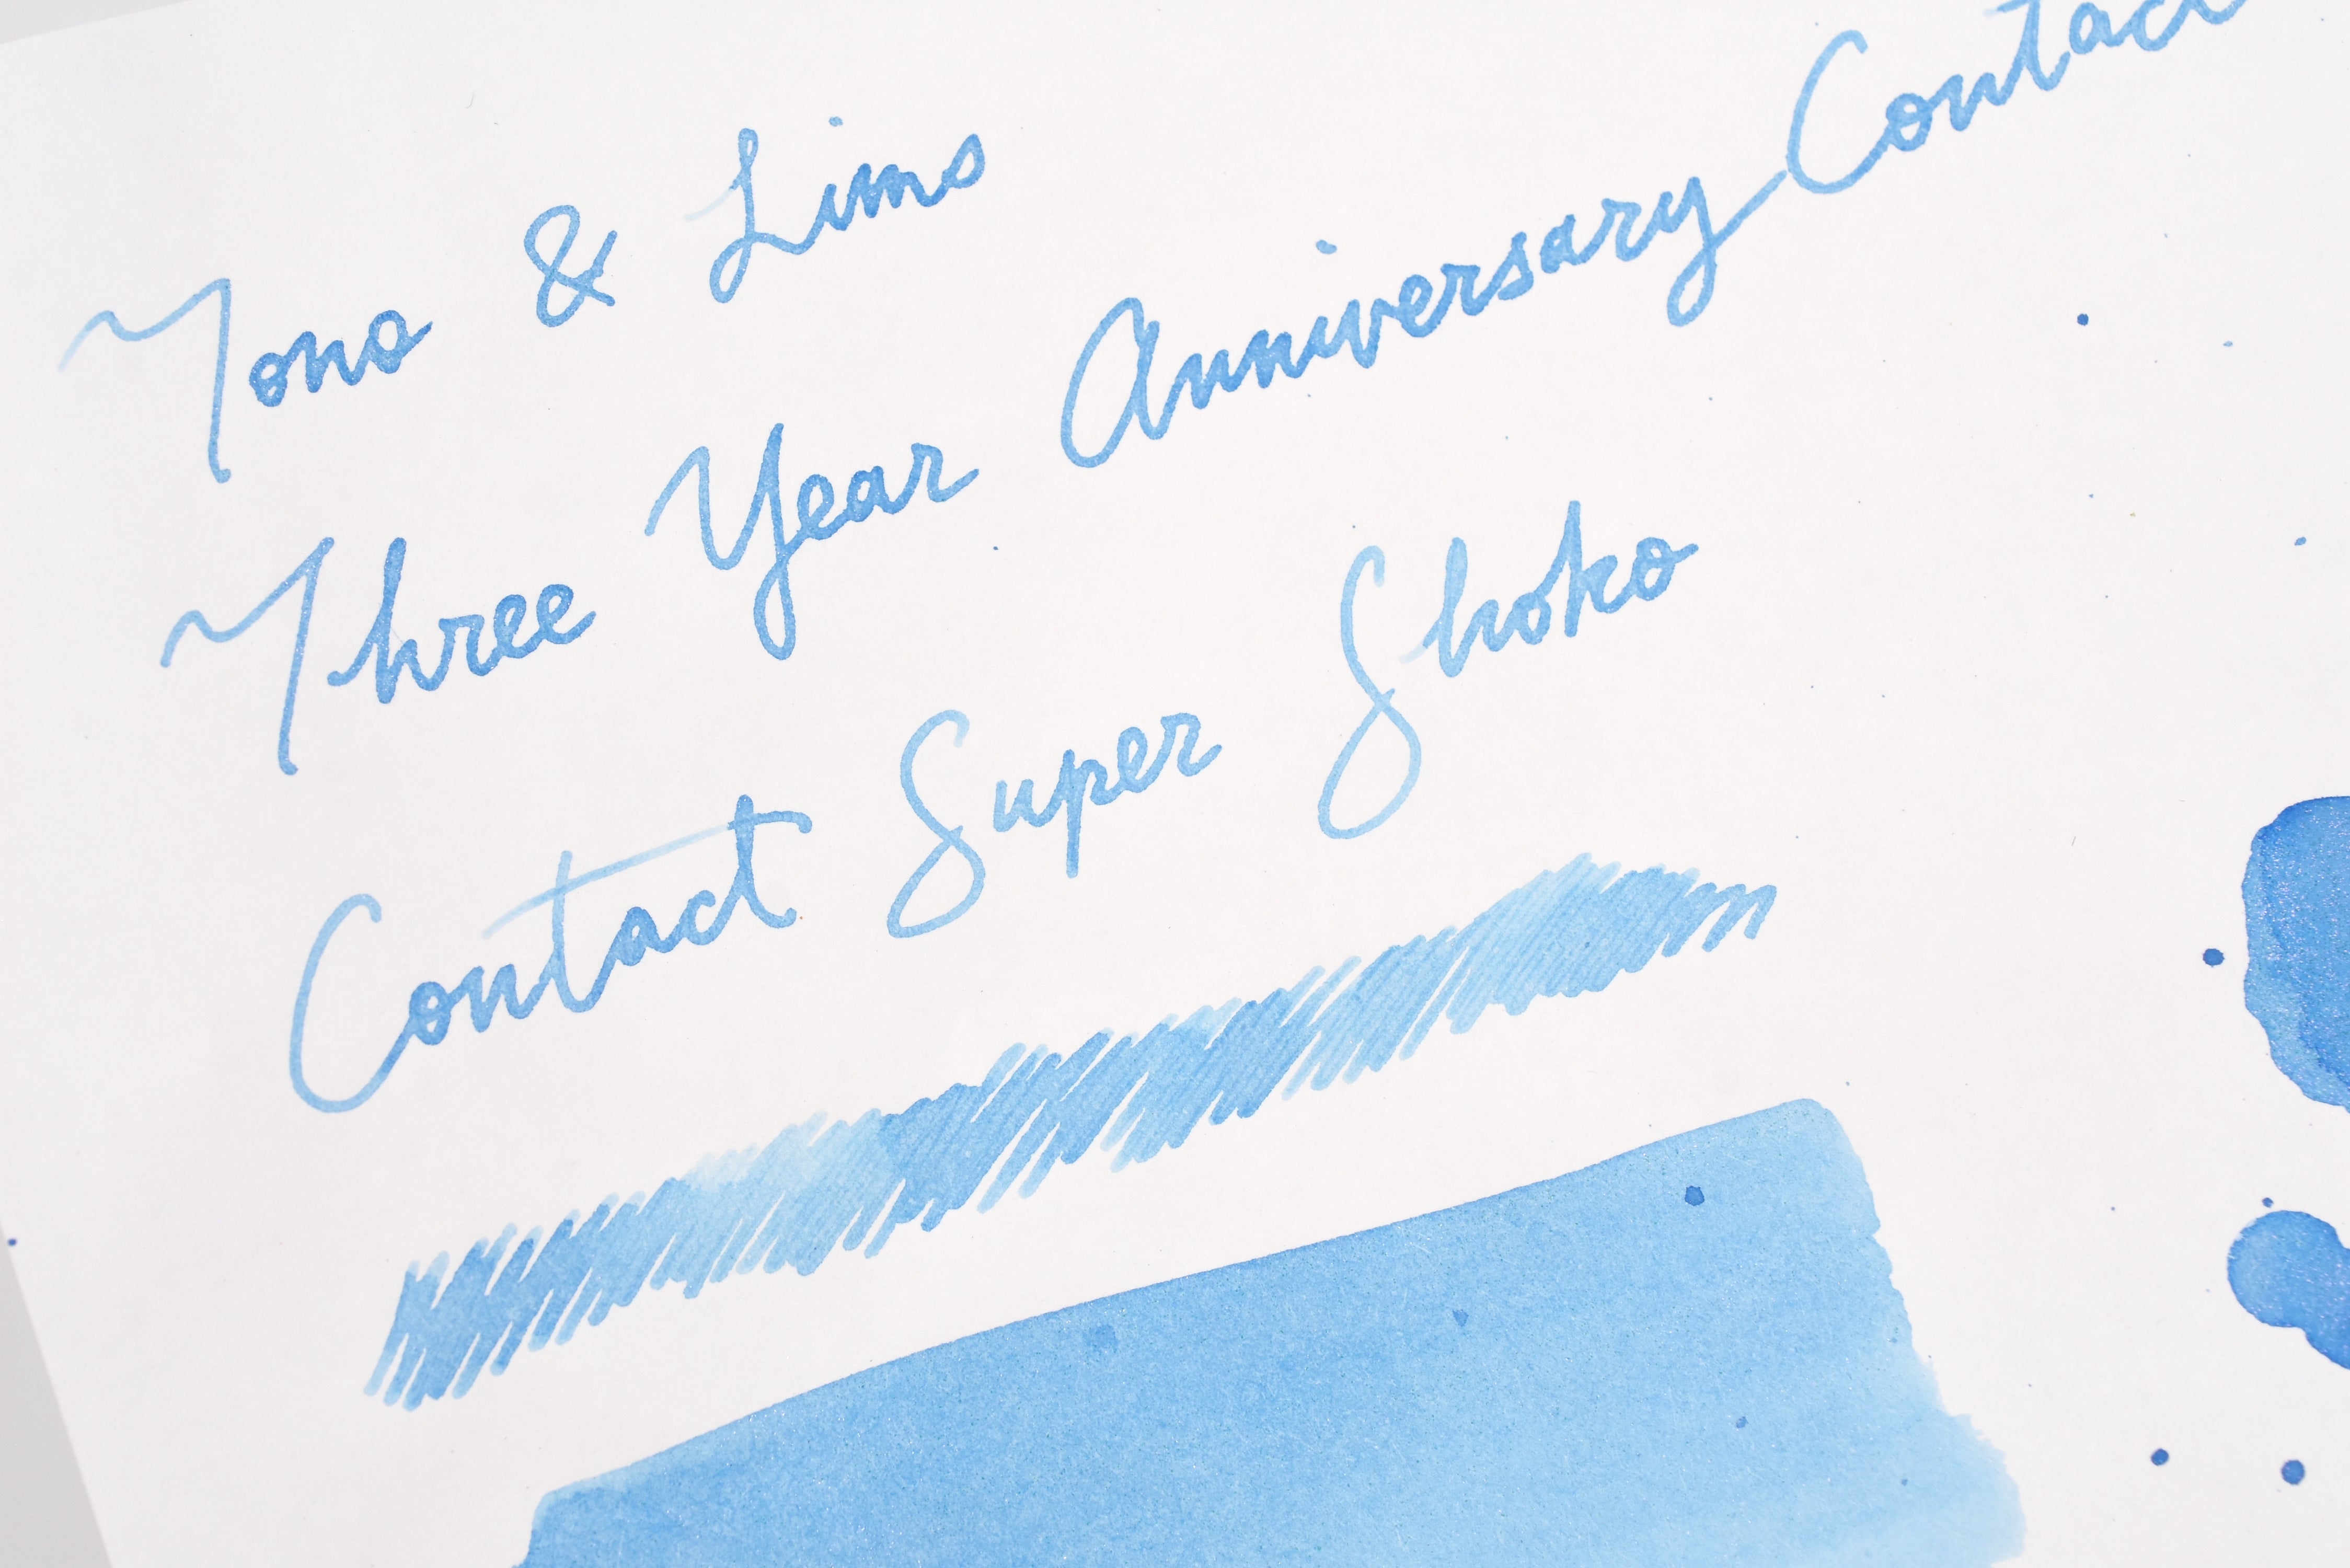 Tono & Lims
Three Year Anniversary Contact
Contact Super Shoko